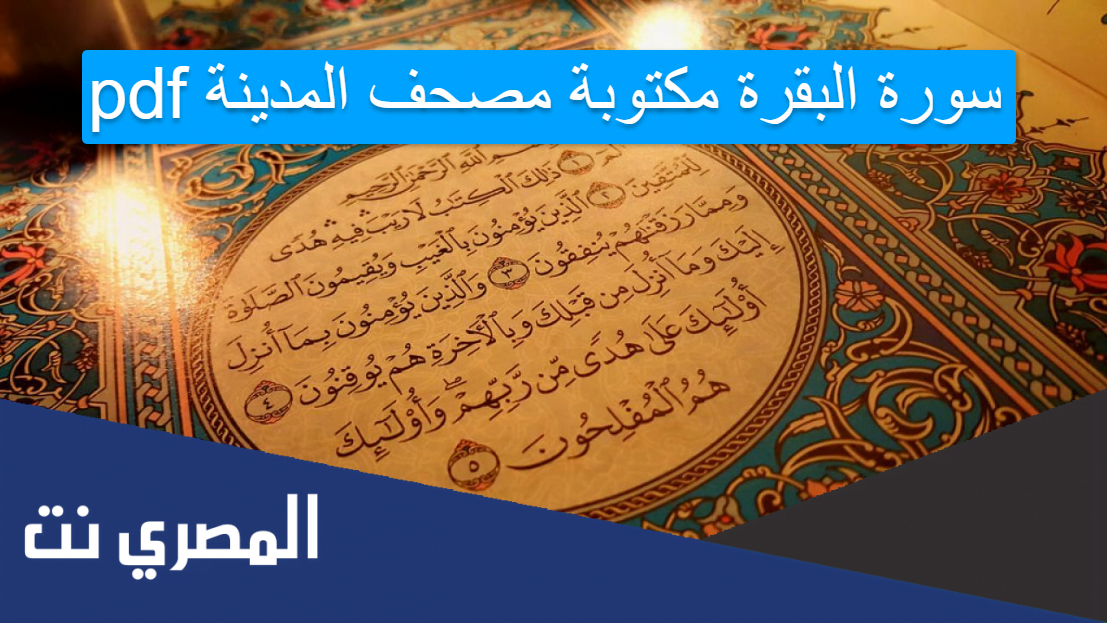 سورة البقرة مكتوبة مصحف المدينة pdf
بسم ٱللَّهِ ٱلرَّحْمَٰنِ ٱلرَّحِيمِ
الٓمٓ ١ ذَٰلِكَ ٱلْكِتَٰبُ لَا رَيْبَ ۛ فِيهِ ۛ هُدًى
لِّلْمُتَّقِينَ ٢ ٱلَّذِينَ يُؤْمِنُونَ بِٱلْغَيْبِ وَيُقِيمُونَ ٱلصَّلَوٰةَ
وَمِمَّا رَزَقْنَٰهُمْ يُنفِقُونَ ٣ وَٱلَّذِينَ يُؤْمِنُونَ بِمَآ أُنزِلَ
إِلَيْكَ وَمَآ أُنزِلَ مِن قَبْلِكَ وَبِٱلْءَاخِرَةِ هُمْ يُوقِنُونَ ٤
أُو۟لَٰٓئِكَ عَلَىٰ هُدًى مِّن رَّبِّهِمْ ۖ وَأُو۟لَٰٓئِكَ
هُمُ ٱلْمُفْلِحُونَ ٥
المصري نت